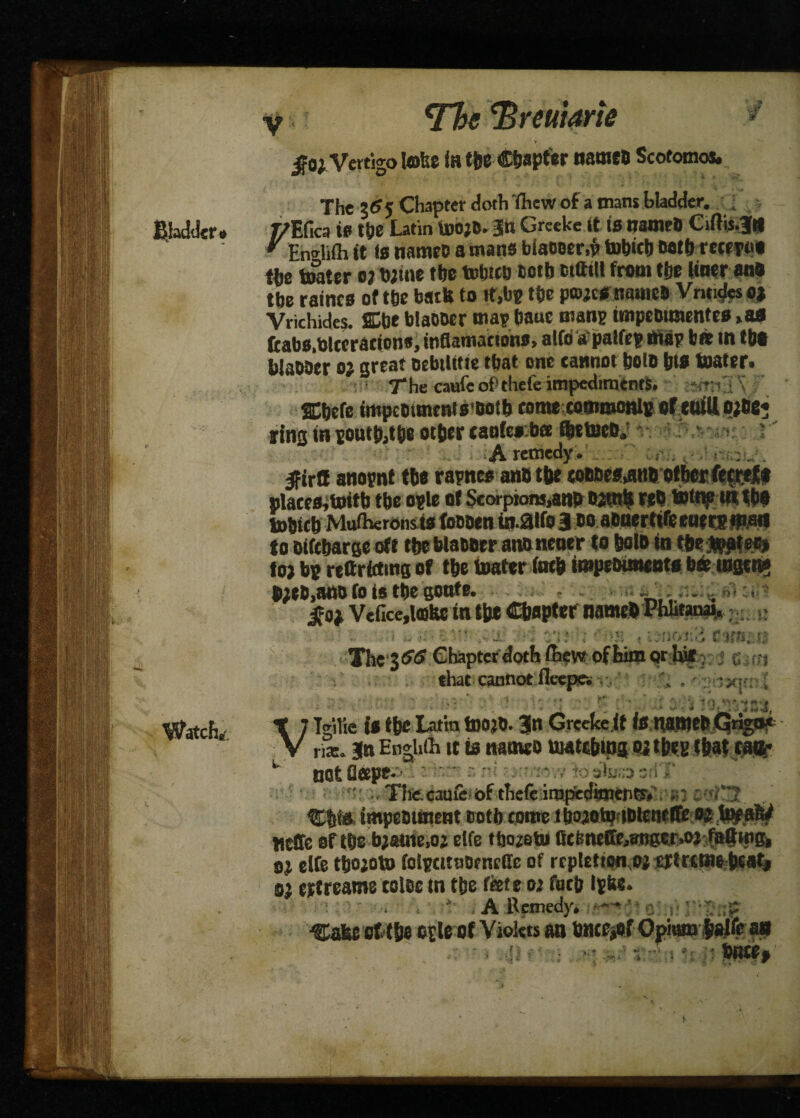 V The Breuiarie
For Vertigo looke in the Chapter named Scotomos.
The 365 Chapter doth shew of a mans bladder.
Bladder.
VEsica is the Latin word. In Greeke it is named Cistis. In
English it is named a mans bladder, ye which doth receyue
the water or vrine the which doth distill from the liuer and
the raines of the back to it, by the pores named Vritides or
Vrichides. The bladder may haue many impedimentes, as
scabs, vlcerations, inflamacions, also a palsey may bee in the
bladder or great debilitie that one cannot hold his water.
The cause of these impediments.
These impediments doth come commonly of euill orde-
ring in youth, the other causes bee shewed.
A remedy.
First anoynt the raynes and the coddes, and other secrets
places, with the oyle of Scorpions, and drink red wine in the
which Musherons is sodden in. Also I do aduertise euery man
to discharge oft the bladder and neuer to hold in the water,
for by restricting of the water such impediments bee ingen-
dred, and so is the goute.
For Vesice, looke in the Chapter named Philitanai.
The 366 Chapter doth shew of him or his
that cannot sleepe.
Watch.
VIgilie is the Latin word. In Greeke it is named Grigor-
riæ. In English it is named watching or they that can-
not sleepe.
The cause of these impediments.
This impediment doth come thorow idlenesse or weak-
nesse of the braine, or else thorow sicknesse, anger, or fasting,
or else thorow solycitudenesse of repletion or extreme heat,
or extreame colde in the feete or such lyke.
A Remedy.
Take of the oyle of Violets an vnce, of Opium halfe an
vnce,